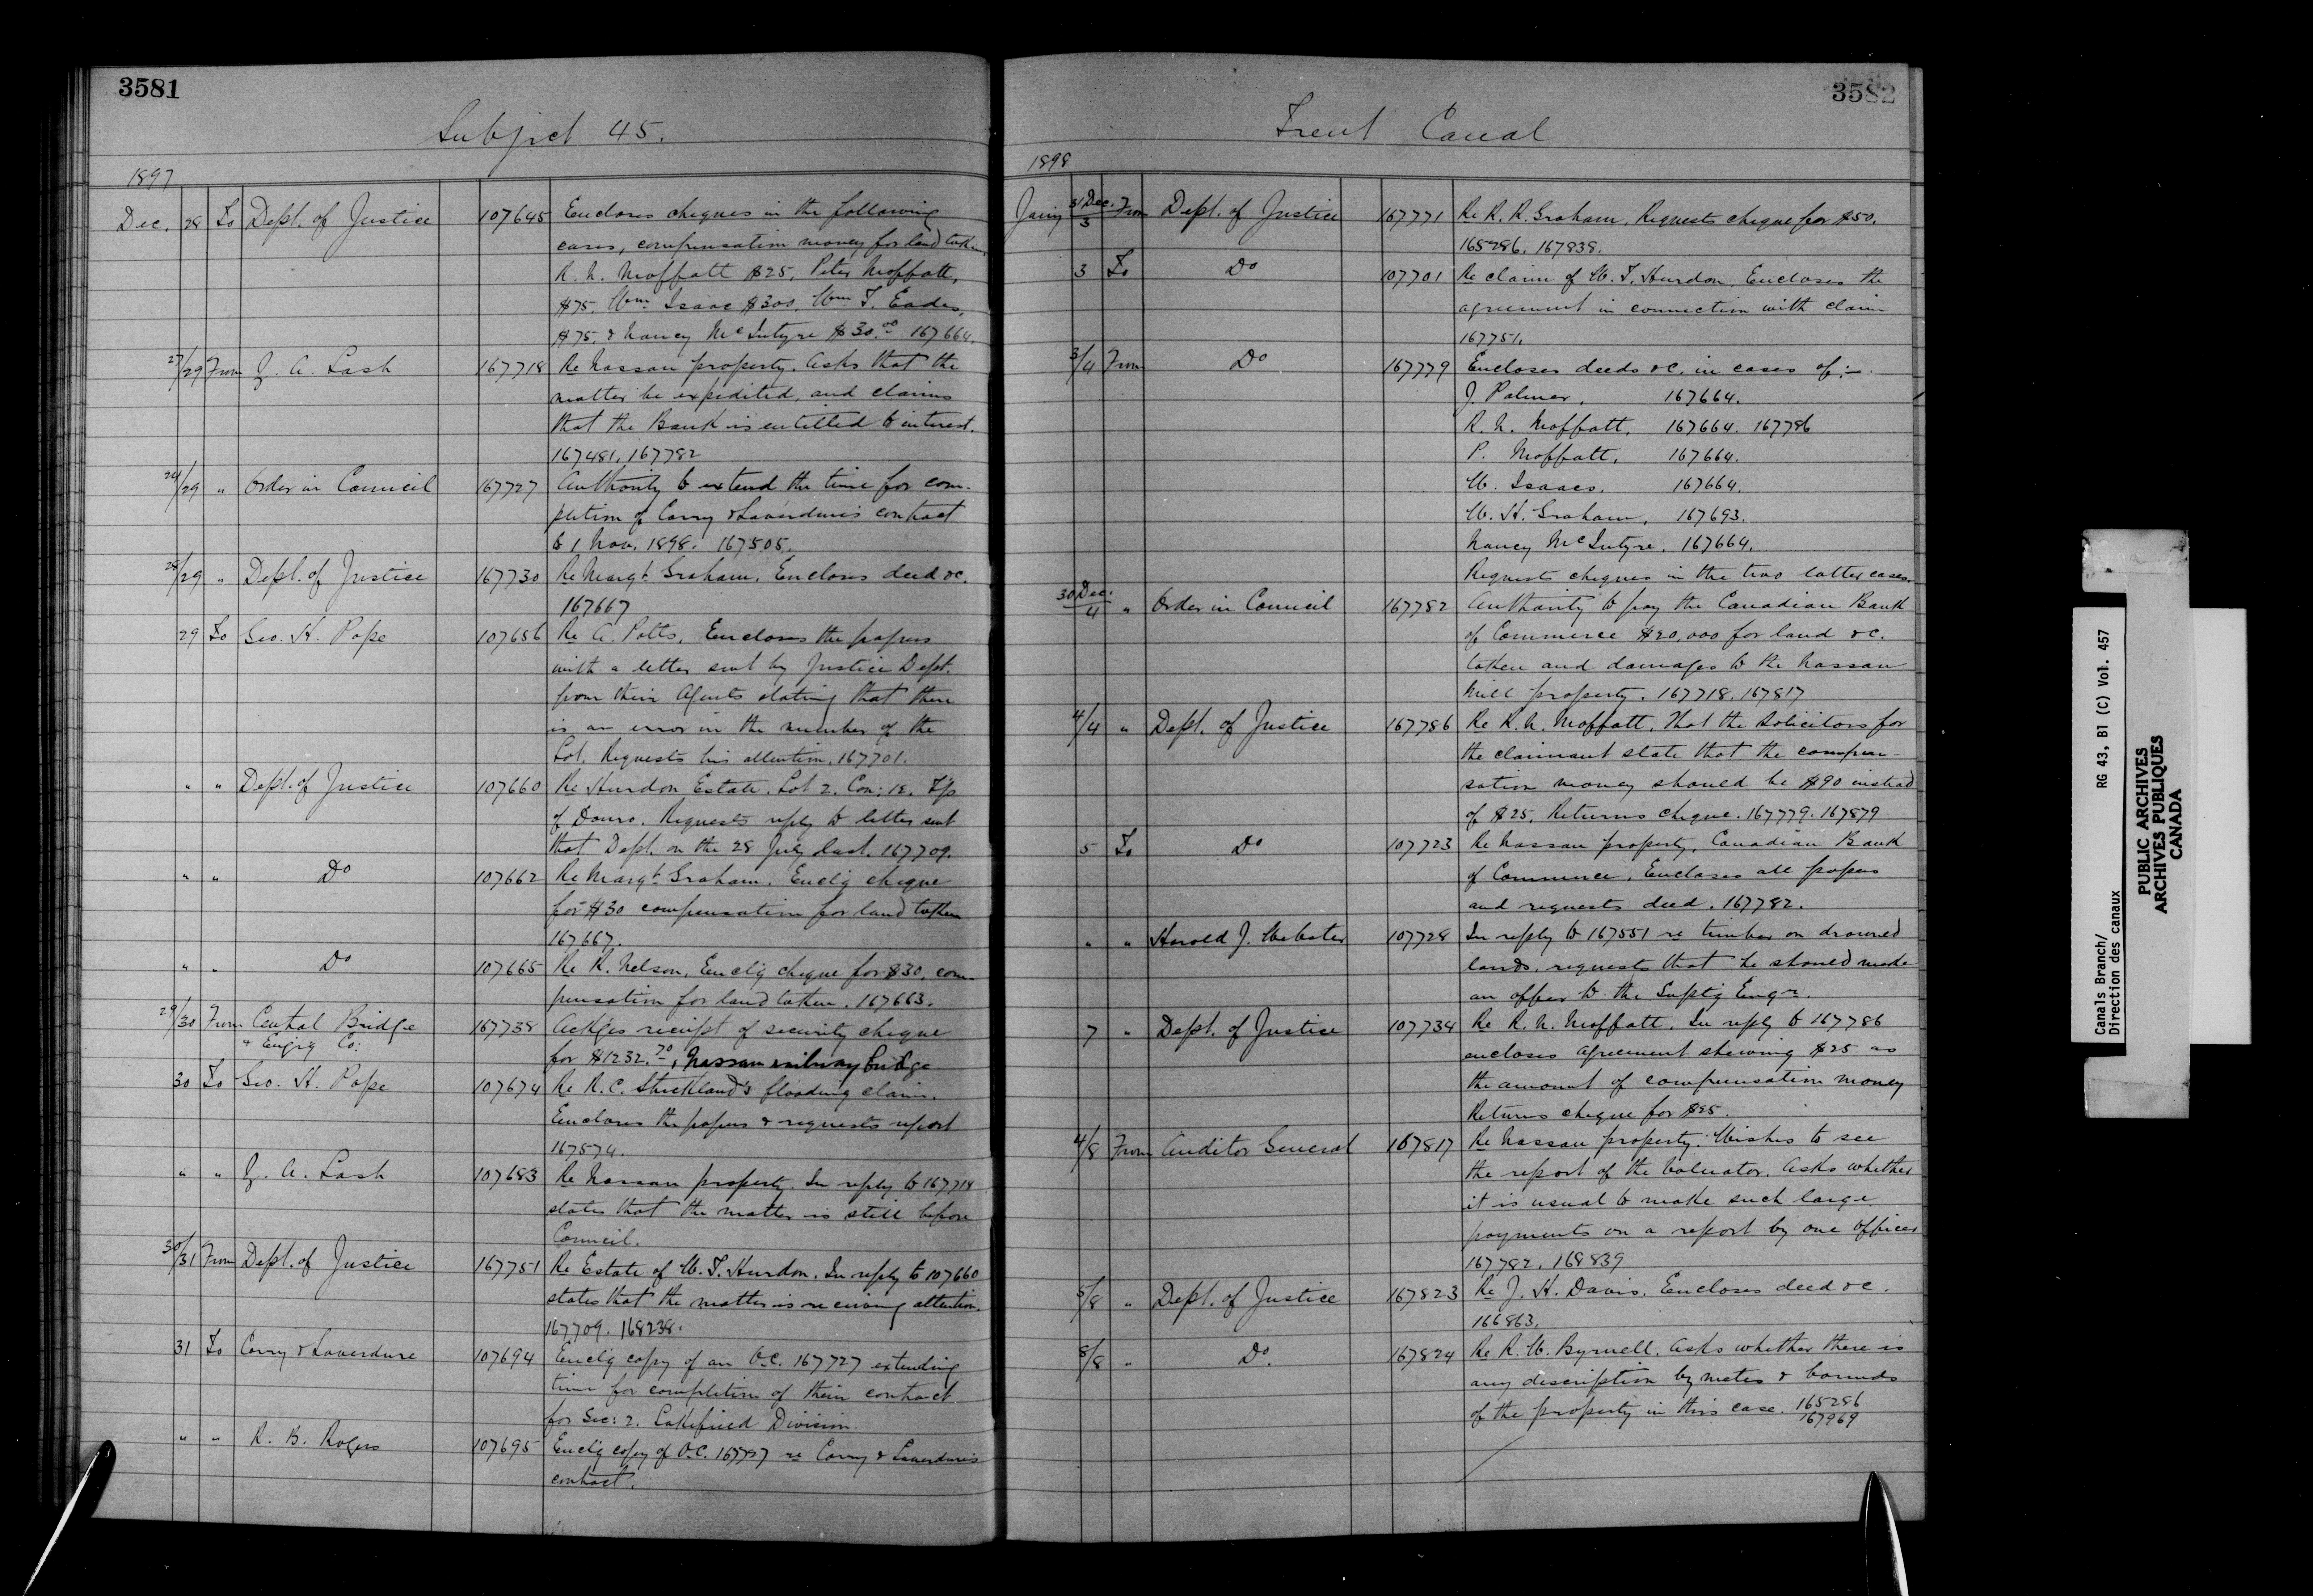 3581
Subject 45.
1897
Dec. 28 To Dept. of Justice 107645 Encloses cheques in the following
cases, compensation money for land taken,
R. N. Moffatt $25, Peter Moffatt,
$75, Wm. Isaac $300, Wm. T. Eades,
$75, & Nancy McIntyre $30.00 167664.
27/29 From Z. A. Lash 167718 Re Nassau property. Asks that the
matter be expedited, and claims
that the Bank is entitled to interest.
167481, 167782
24/29 " Order in Council 167727 Authority to extend the time for com-
pletion of Corry & Laverdure's contract
to 1 Nov. 1898. 167505.
28/29 " Dept. of Justice 167730 Re Margt. Graham. Encloses deed &c.
167667
29 To Geo. H. Pope 107656 Re A. Potts, Encloses the papers
with a letter sent by Justice Dept.
from their Agents stating that there
is an error in the number of the
Lot. Requests his attention. 167701.
" " Dept. of Justice 107660 Re Hurdon Estate. Lot 2. Con: 12. T'p
of Douro. Requests reply to letter sent
that Dept. on the 28 July last. 167709.
" " Do 107662 Re Margt. Graham. Enclg cheque
for $30 compensation for land taken
167667.
" " Do 107665 Re R. Nelson, Enclg cheque for $30, com-
pensation for land taken. 167663.
29/30 From Central Bridge 167738 Ackges receipt of security cheque
& Engrg Co: for $1232.70, Nassau railway bridge
30 To Geo. H. Pope 107674 Re R. C. Strickland's flooding claim.
Encloses the papers & requests report
167574.
" " Z. A. Lash 107683 Re Nassau property. In reply to 167718
states that the matter is still before
Council.
30/31 From Dept. of Justice 167751 Re Estate of W. T. Hurdon. In reply to 107660
states that the matter is receiving attention.
167709. 168238.
31 To Corry & Laverdure 107694 Enclg copy of an O.C. 167727 extending
time for completion of their contract
for Sec: 2. Lakefield Division.
" " R. B. Rogers 107695 Enclg copy of O.C. 167727 re Corry & Laverdure's
contract.
3582
Trent Canal
1898
Jany 31 Dec./3 From Dept. of Justice 167771 Re R. R. Graham. Requests cheque for $50.
165286. 167838.
3 To Do 107701 Re claim of W. T. Hurdon. Encloses the
agreement in connection with claim
167751.
3/4 From Do 167779 Encloses deeds &c. in cases of:-
J. Palmer, 167664.
R. N. Moffatt, 167664. 167786
P. Moffatt, 167664.
W. Isaacs. 167664.
W. H. Graham, 167693.
Nancy McIntyre. 167664.
Requests cheques in the two latter cases.
30 Dec./4 " Order in Council 167782 Authority to pay the Canadian Bank
of Commerce $20,000 for land &c.
taken and damages to the Nassau
Mill property. 167718. 167817
4/4 " Dept. of Justice 167786 Re R. N. Moffatt. That the solicitors for
the claimant state that the compen-
sation money should be $90 instead
of $25. Returns cheque. 167779. 167879
5 To Do 107723 Re Nassau property, Canadian Bank
of Commerce. Encloses all papers
and requests deed. 167782.
" " Harold J. Webster 107728 In reply to 167551 re timber on drowned
lands, requests that he should make
an offer to the Suptg Engr.
7 " Dept. of Justice 107734 Re R. N. Moffatt. In reply to 167786
encloses agreement shewing $25 as
the amount of compensation money
Returns cheque for $25.
4/8 From Auditor General 167817 Re Nassau property. Wishes to see
the report of the Valuator. Asks whether
it is usual to make such large
payments on a report by one officer
167782. 168839
5/8 " Dept. of Justice 167823 Re J. H. Davis. Encloses deed &c.
166863.
8/8 " Do. 167824 Re R. W. Byrnell. Asks whether there is
any description by metes & bounds
of the property in this case. 165286
167969
Canals Branch/ RG 43, B1 (C) Vol. 457
Direction des canaux
PUBLIC ARCHIVES
ARCHIVES PUBLIQUES
CANADA